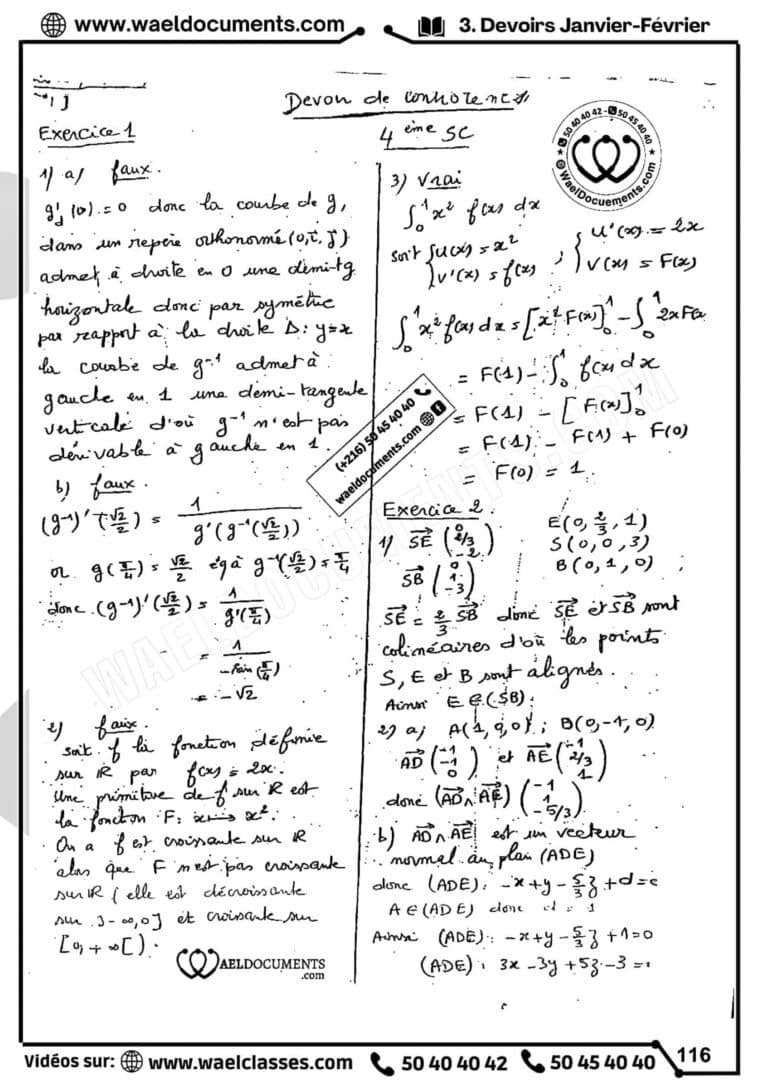 www.waeldocuments.com
3. Devoirs Janvier-Février
Devoir de contrôle n°
4 ème SC
50 40 40 42 - 50 45 40 40
WaelDocuements.com
Exercice 1
1) a) faux.
g'd (0) = 0 donc la courbe de g,
dans un repère orthonormé (0, i, j)
admet à droite en 0 une demi-tg
horizontale donc par symétrie
par rapport à la droite Δ: y=x
la courbe de g⁻¹ admet à
gauche en 1 une demi-tangente
verticale d'où g⁻¹ n'est pas
dérivable à gauche en 1.
b) faux.
(g⁻¹)'(√2/2) = 1 / g'(g⁻¹(√2/2))
or g(π/4) = √2/2 éqà g⁻¹(√2/2) = π/4
donc (g⁻¹)'(√2/2) = 1 / g'(π/4)
= 1 / -sin(π/4)
= -√2
2) faux.
soit f la fonction définie
sur IR par f(x) = 2x.
Une primitive de f sur IR est
la fonction F: x ↦ x².
On a f est croissante sur IR
alors que F n'est pas croissante
sur IR ( elle est décroissante
sur ]-∞,0] et croissante sur
[0, +∞[ ).
WAELDOCUMENTS
.com
3) Vrai
∫₀¹ x² f(x) dx
soit { u(x) = x² ; { u'(x) = 2x
{ v'(x) = f(x) { v(x) = F(x)
∫₀¹ x² f(x) dx = [x² F(x)]₀¹ - ∫₀¹ 2x F(x)
= F(1) - ∫₀¹ f(x) dx
= F(1) - [F(x)]₀¹
= F(1) - F(1) + F(0)
= F(0) = 1.
(+216) 50 45 40 40
waeldocuments.com
Exercice 2.
E(0, 2/3, 1)
1) SE (0 2/3 -2) S(0, 0, 3)
SB (0 1 -3) B(0, 1, 0)
SE = 2/3 SB donc SE et SB sont
colinéaires d'où les points
S, E et B sont alignés.
Ainsi E ∈ (SB).
2) a) A(1, 0, 0) ; B(0, -1, 0)
AD (-1 -1 0) et AE (-1 2/3 1)
donc (AD ∧ AE) (-1 1 -5/3)
b) AD ∧ AE est un vecteur
normal au plan (ADE)
donc (ADE): -x + y - 5/3 z + d = 0
A ∈ (ADE) donc d = 1
Ainsi (ADE): -x + y - 5/3 z + 1 = 0
(ADE): 3x - 3y + 5z - 3 =
Vidéos sur: www.waelclasses.com 50 40 40 42 50 45 40 40
116